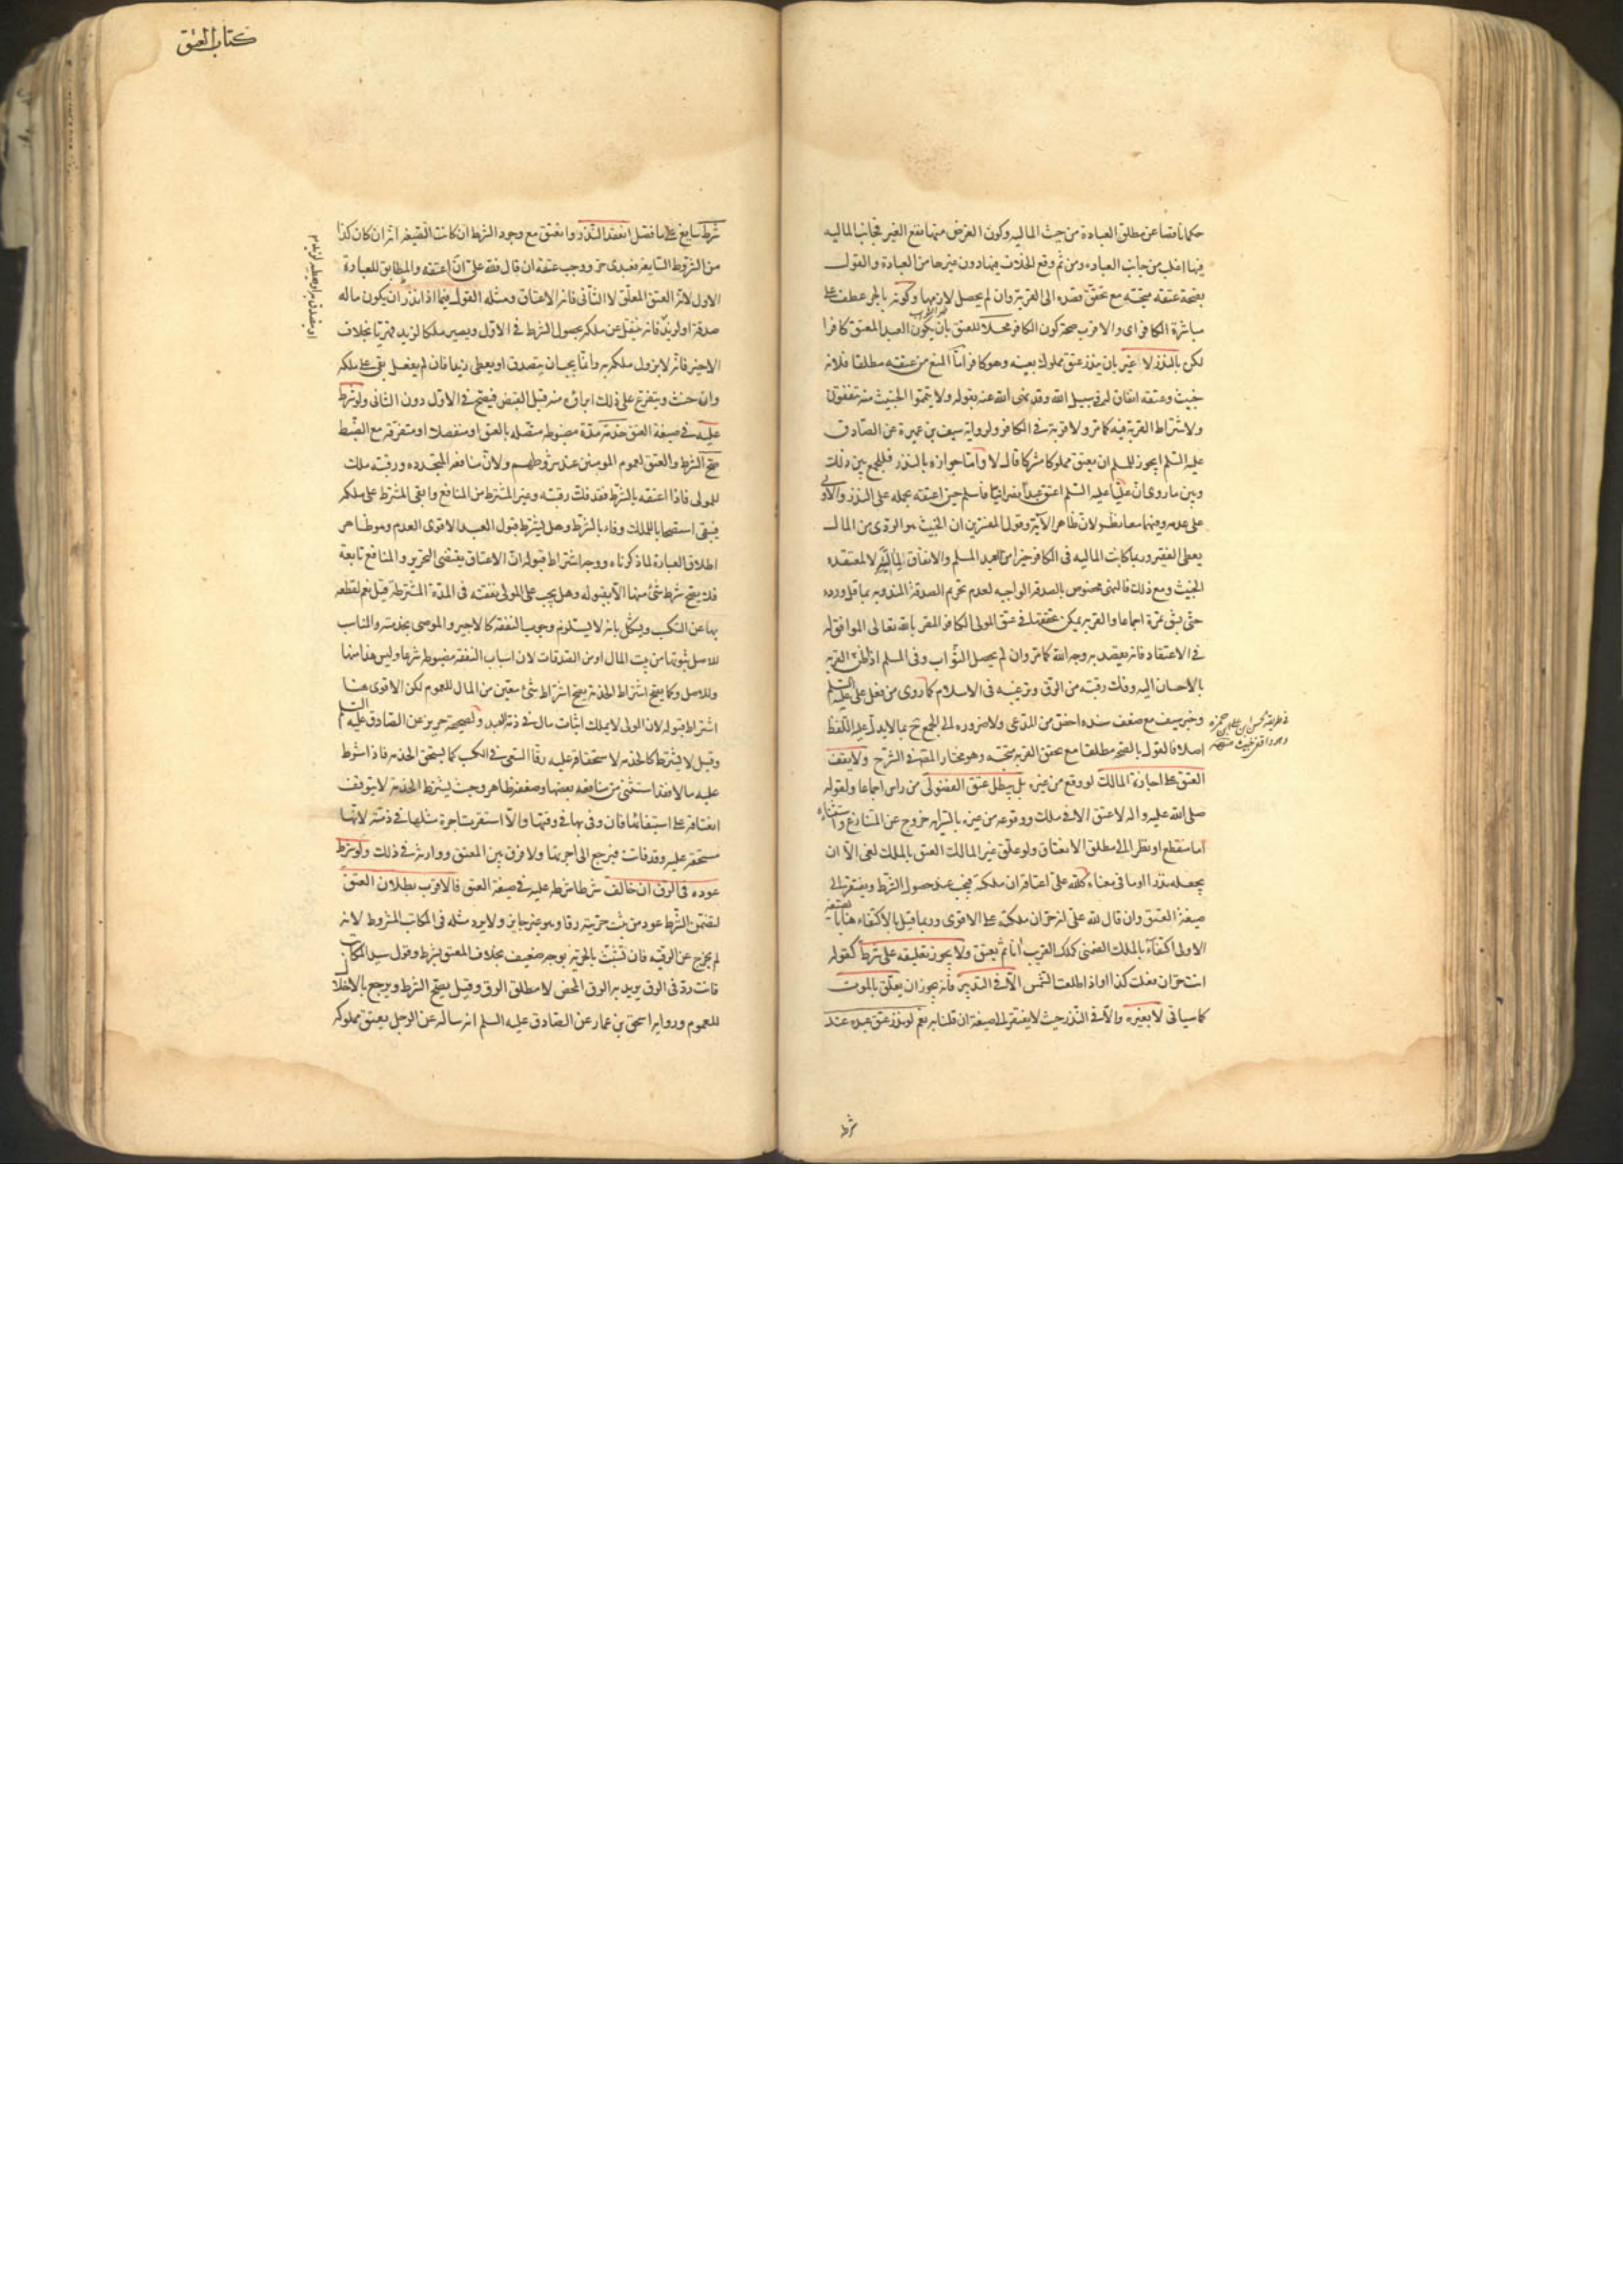 كتاب العتق
حكما ناقصا عن مطلق العبادة من حيث الماليه وكون الغرض منها نفع الغير فجانب الماليه
فيها اغلب من جانب العباده ومن ثم وقع الخلاف فيها دون غيرها من العبادة والقول
بصحة عتقه متجه مع تحقق قصده الى القربة وان لم يحصل لازمها وكونه بالجر عطف على
مباشرة الكافر اى والاقرب صحة كون الكافر محلا للعتق بان يكون العبد المعتق كافرا
لكن بالنذر لا غير بان ينذر عتق مملوك بعينه وهو كافر اما المنع من عتقه مطلقا فلانه
خبيث وعتقه انفاق له فى سبيل الله وقد نهى الله عنه بقوله ولا تيمموا الخبيث منه تنفقون
ولاشتراط القربة فيه كما مر ولا قربة فى الكافر ولرواية سيف بن عميرة عن الصادق
عليه السلم ايجوز للمسلم ان يعتق مملوكا مشركا قال لا واما جوازه بالنذر فللجمع بين ذلك
وبين ما روى ان عليا عليه السلم اعتق عبدا نصرانيا فاسلم حين اعتقه بحمله على النذر والاولى
على عدمه وفيهما معا نظر لان ظاهر الآية وقول المفسرين ان الخبيث هو الردى من المال
يعطى الفقير وربما كانت الماليه فى الكافر خيرا من العبد المسلم والانفاق لماليته لا لمعتقده
الخبيث ومع ذلك فالنهى مخصوص بالصدقة الواجبه لعدم تحريم الصدقة المندوبه بما قل ورده
حتى بشق تمرة اجماعا والقربة يمكن تحققها فى عتق المولى الكافر المقر بالله تعالى الموافق له
فى الاعتقاد فانه يقصد به وجه الله كما مر وان لم يحصل الثواب وفى المسلم اذا ظن القربه
بالاحسان اليه وفك رقبته من الرق وترغيبه فى الاسلام كما روى من فعل على عليه السلم
وخبر سيف مع ضعف سنده اخص من المدعى ولا ضروره الى الجمع ح بما لا يدل عليه اللفظ
اصلا فالقول بالصحه مطلقا مع تحقق القربه متجه وهو مختار المصنف فى الشرح ولا يقف
العتق على اجازة المالك لو وقع من غيره بل يبطل عتق الفضولى من راس اجماعا ولقوله
صلى الله عليه واله لا عتق الا فى ملك ووقوعه من غيره بالسراية خروج عن المتنازع واستثناءه
اما منقطع او نظر الى مطلق الانعتاق ولو علق غير المالك العتق بالملك لغى الا ان
يجعله نذرا او ما فى معناه كلله على اعتاقه ان ملكته فيجب عند حصول الشرط ويفتقر الى
صيغة العتق وان قال لله على انه حر ان ملكته على الاقوى وربما قيل بالاكتفاء هنا بالصيغة
الاولى اكتفاء بالملك الضمنى كملك القريب آنا ثم يعتق ولا يجوز تعليقه على شرط كقوله
انت حر ان فعلت كذا او اذا طلعت الشمس الا فى التدبير فانه يجوز ان يعلق بالموت
كما سياتى لا بغيره والا فى النذر حيث لا يفتقر الى صيغة ان قلنا به نعم لو نذر عتق عبده عند
شرط
شرط سايغ على ما فصل انعقد النذر وانعتق مع وجود الشرط ان كانت الصيغه انه ان كان كذا
من الشروط السايغه فعبدى حر ووجب عتقه ان قال فلله على ان اعتقه والمطابق للعبادة
الاول لانه العتق المعلق لا الثانى فانه الاعتاق ومثله القول فيما اذا نذر ان يكون ماله
صدقة او لزيد فانه ينتقل عن ملكه بحصول الشرط فى الاول ويصير ملكا لزيد قهريا بخلاف
الاخير فانه لا يزول ملكه به وانما يجب ان يتصدق او يعطى زيدا فان لم يفعل بقى على ملكه
وان حنث ويتفرع على ذلك ابراؤه منه قبل القبض فيصح فى الاول دون الثانى ولو شرط
عليه فى صيغة العتق خدمة مدة مضبوطه متصله بالعتق او منفصلة او متفرقه مع الضبط
صح الشرط والعتق لعموم المومنين عند شروطهم ولان منافعه المتجدده ورقبته ملك
للمولى فاذا اعتقه بالشرط فقد فك رقبته وغير المشترط من المنافع وابقى المشترط على ملكه
فيبقى استصحابا للملك وفاء بالشرط وهل يشترط قبول العبد الاقوى العدم وهو ظاهر
اطلاق العبارة لما ذكرناه ووجه اشتراط قبوله ان الاعتاق يقتضى التحرير والمنافع تابعة
فلا يصح شرط شئ منها الا بقبوله وهل يجب على المولى نفقته فى المدة المشترطة قيل نعم لقطعه
بها عن التكسب ويشكل بانه لا يستلزم وجوب النفقه كالاجير والموصى بخدمته والمناسب
للاصل ثبوتها من بيت المال او من الصدقات لان اسباب النفقه مضبوطه شرعا وليس هذا منها
وللاصل وكما يصح اشتراط الخدمة يصح اشتراط شئ معين من المال للعموم لكن الاقوى هنا
اشتراط قبوله لان المولى لا يملك اثبات مال فى ذمة العبد ولصحيحة حريز عن الصادق عليه السلم
وقيل لا يشترط كالخدمه لاستحقاقه عليه رقا السعى فى الكسب كما يستحق الخدمه فاذا شرط
عليه مالا فقد استثنى من منافعه بعضها وضعفه ظاهر وحيث يشترط الخدمه لا يتوقف
انعتاقه على استيفائها فان وفى بها فى وقتها والا استقرت اجرة مثلها فى ذمته لانها
مستحقه عليه وقد فاتت فيرجع الى اجرتها ولا فرق بين المعتق ووارثه فى ذلك ولو شرط
عوده فى الرق ان خالف شرطا شرطه عليه فى صيغة العتق فالاقرب بطلان العتق
لتضمن الشرط عود من ثبت حريته رقا وهو غير جايز ولا يرد مثله فى المكاتب المشروط لانه
لم يخرج عن الرقيه فان تشبث بالحريه بوجه ضعيف بخلاف المعتق بشرط وقول سيد المكاتب
فانت رد فى الرق يريد به الرق المحض لا مطلق الرق وقيل يصح الشرط ويرجع بالاخلال
للعموم ورواية اسحق بن عمار عن الصادق عليه السلم انه ساله عن الرجل يعتق مملوكه